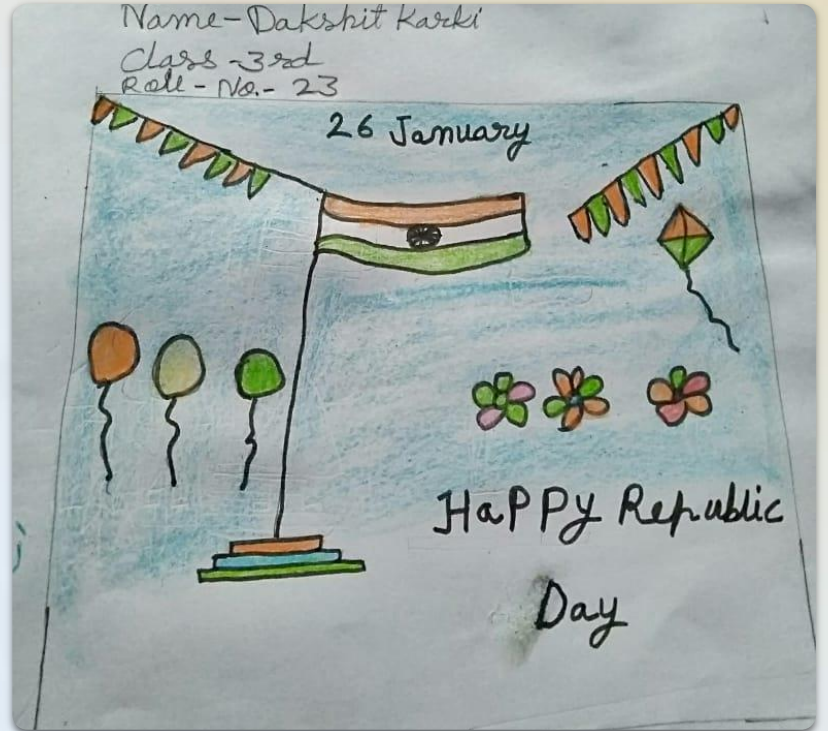 Name-Dakshit Karki
Class-3rd
Roll-No.-23
26 January
HaPPy Republic
Day